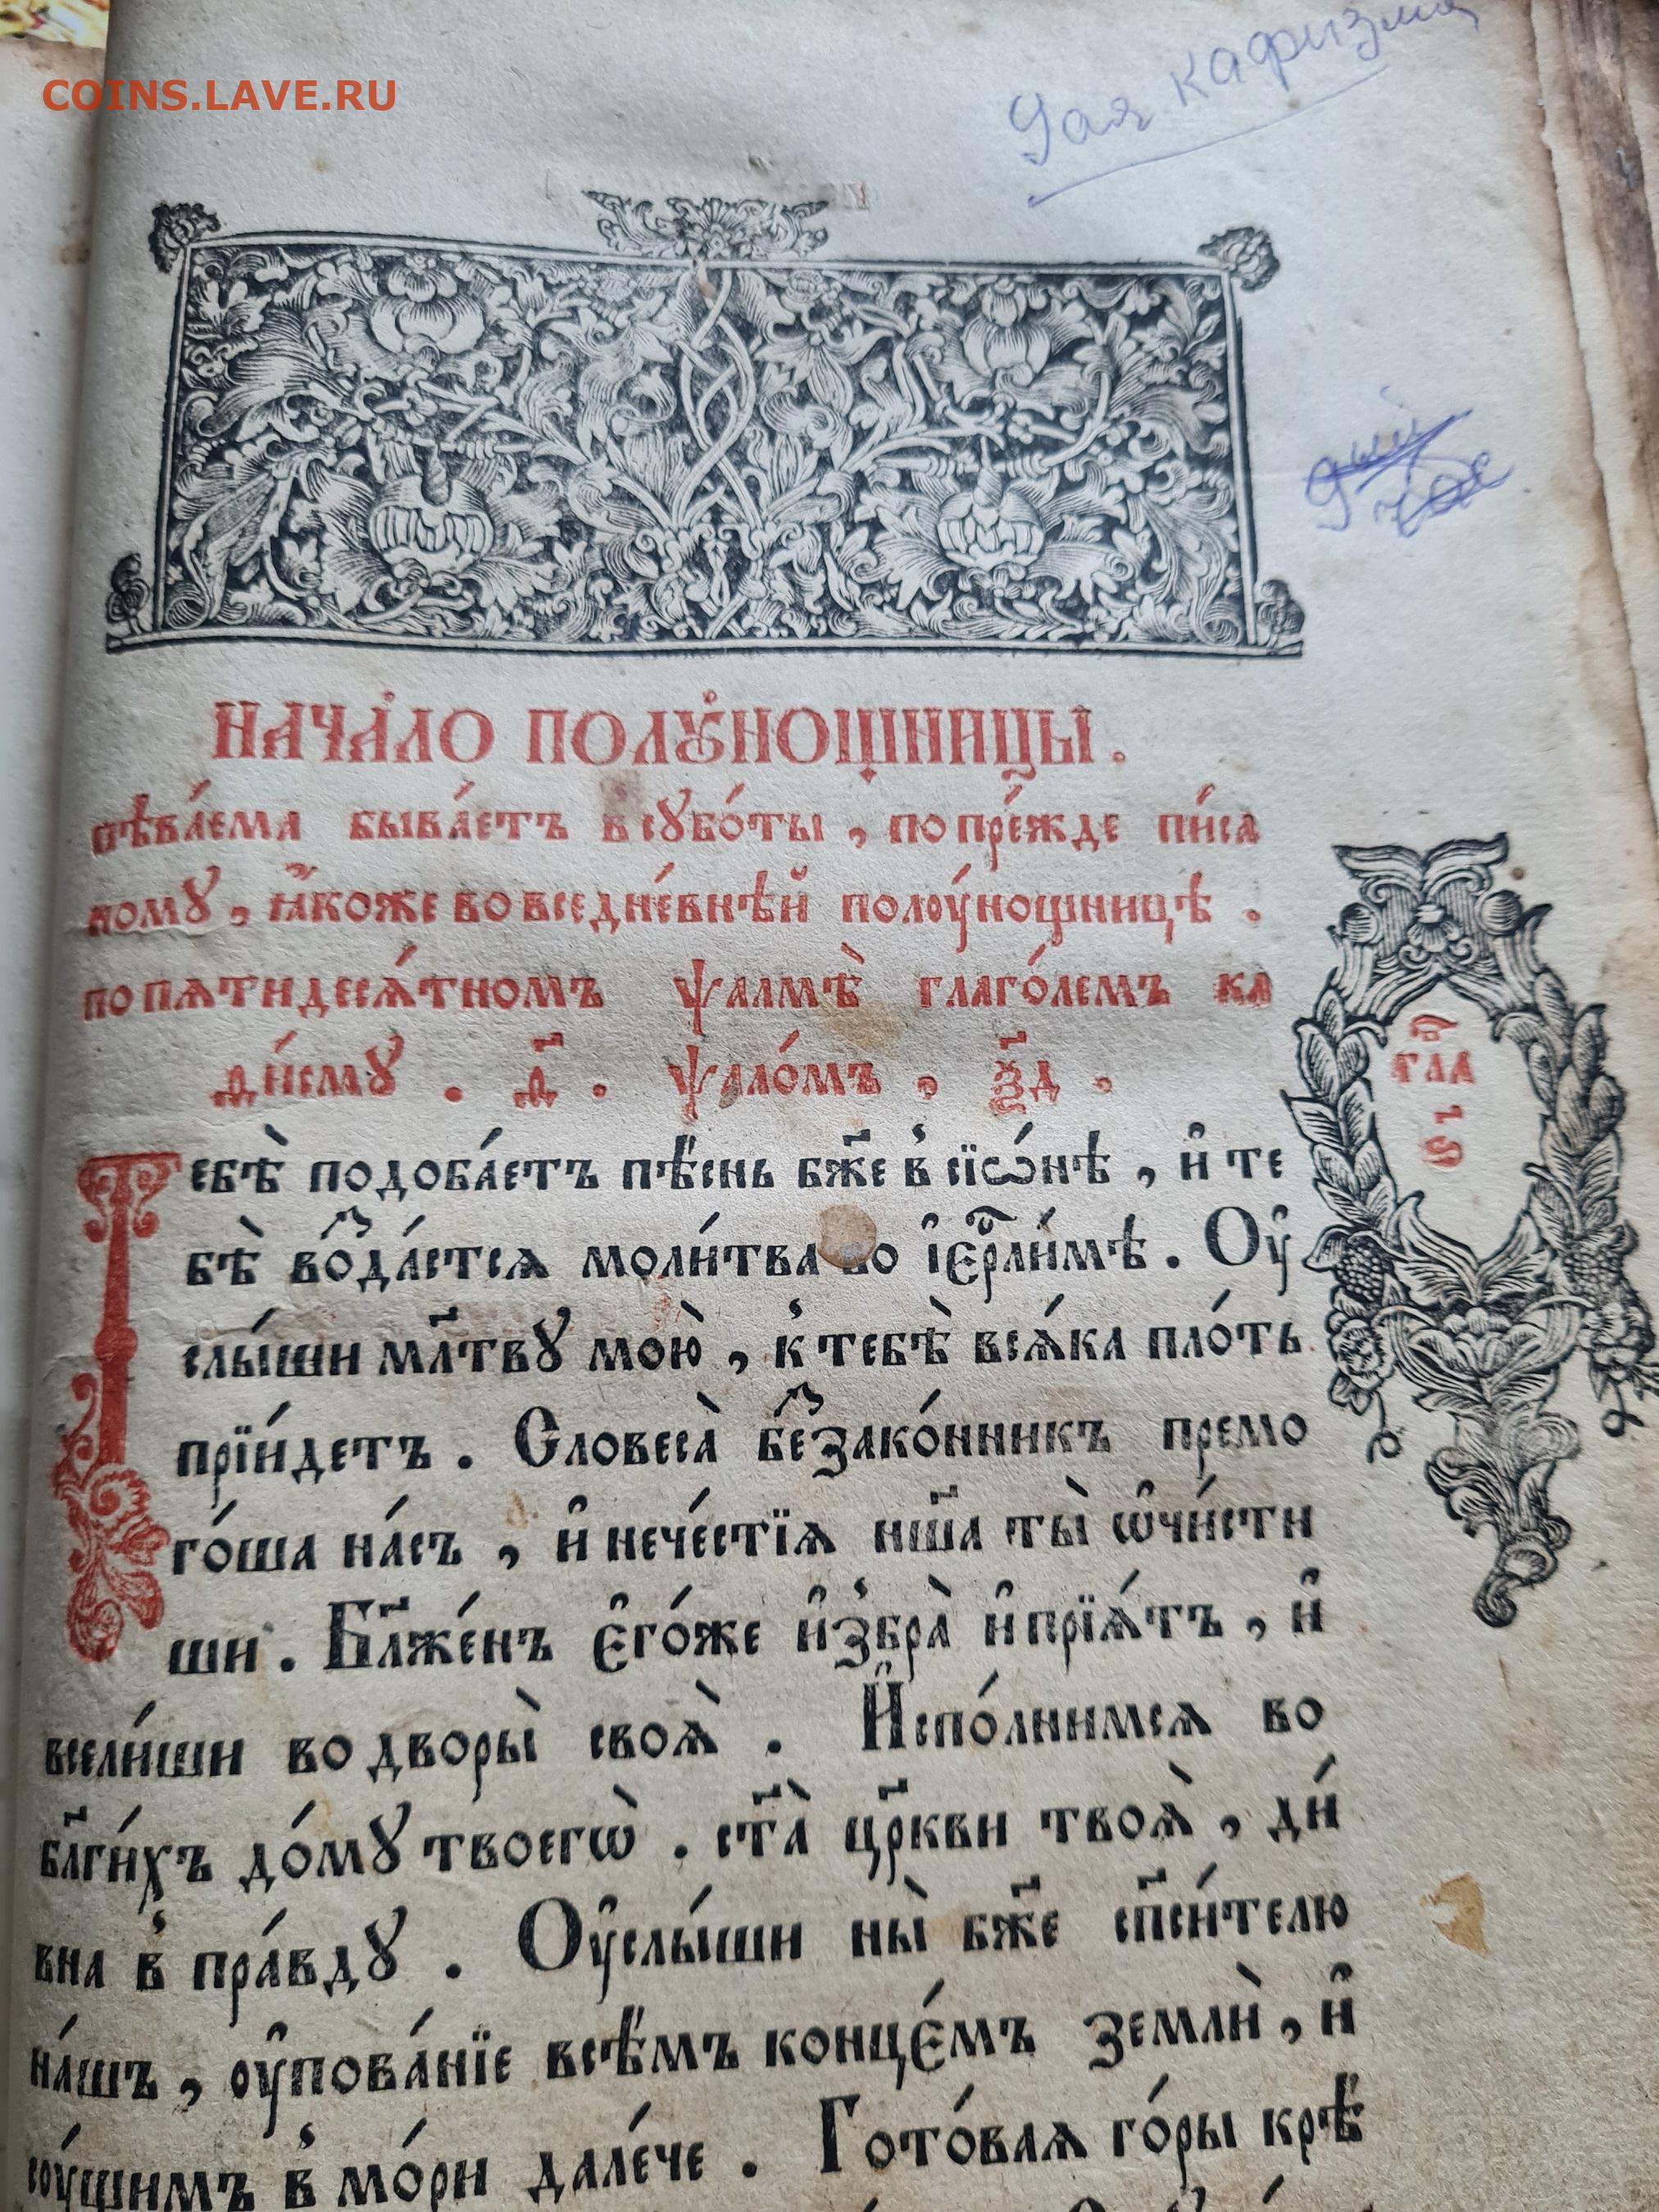 COINS.LAVE.RU
9ая кафизма
9ый
час
НАЧА́ЛО ПОЛꙊ́НОЩНИЦЫ.
пѣва́ема быва́етъ в̾сꙋбѡ́ты, по пре́жде писа
ному, ꙗ҆́коже во вседне́внѣй полоу́нощнице.
по пѧтидесѧ́тномъ ѱалмѣ̀ глаго́лемъ ка
ди́смꙋ. д҃. ѱало́мъ, ѯ҃д.
Тебѣ̀ подоба́етъ пѣ́снь бж҃е в̾ сїѡ́нѣ, и҆ те
бѣ̀ во́здастсѧ моли́тва во і҆ер҇ли́мѣ. Оу҆
слы́ши мл҃твꙋ мою̀, к̾ тебѣ̀ всѧ́ка пло́ть
прїи́детъ. Словеса̀ беззако́нникъ премо
го́ша на́съ, и҆ нече́стїѧ на́ша ты̀ ѡ҆чи́сти
ши. Бл҃же́нъ є҆го́же и҆збра̀ и҆ прїѧ́тъ, и҆
всели́ши во дворы̀ своѧ̀. И҆спо́лнимсѧ во
бл҃ги́хъ до́мꙋ твоегѡ̀. ст҃а̀ цр҃кви твоѧ̀, ди́
вна в̾ пра́вдꙋ. Оу҆слы́ши ны̀ бж҃е сп҃си́телю
на́шъ, оу҆пова́нїе всѣ́мъ конце́мъ землѝ, и҆
соу́щимъ в̾ мо́ри дале́че. Гото́ваѧ го́ры крѣ́
гла